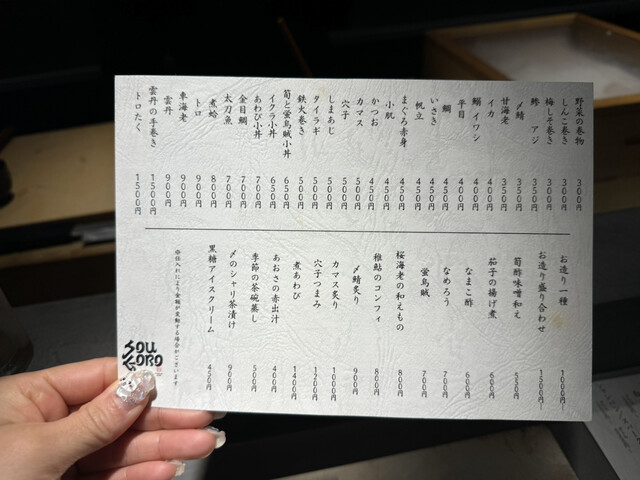 野菜の巻物 300円
しんこ巻き 300円
梅しそ巻き 300円
鯵 アジ 350円
〆鯖 350円
甘海老 350円
イカ 400円
鰯 イワシ 400円
平目 400円
鯛 450円
いさき 450円
帆立 450円
まぐろ赤身 450円
小肌 450円
かつお 450円
カマス 500円
穴子 500円
しまあじ 500円
タイラギ 500円
鉄火巻き 500円
筍と蛍烏賊小丼 650円
イクラ小丼 650円
あわび小丼 700円
金目鯛 700円
太刀魚 700円
煮蛤 800円
トロ 900円
車海老 900円
雲丹 900円
雲丹の手巻き 1500円
トロたく 1500円
お造り一種 1000円~
お造り盛り合わせ 1500円~
筍酢味噌和え 550円
茄子の揚げ煮 600円
なまこ酢 600円
なめろう 700円
蛍烏賊 700円
桜海老の和えもの 800円
稚鮎のコンフィ 800円
〆鯖炙り 900円
カマス炙り 1000円
穴子つまみ 1200円
煮あわび 1400円
あおさの赤出汁 400円
季節の茶碗蒸し 500円
〆のシャリ茶漬け 900円
黒糖アイスクリーム 450円
※仕入れにより金額が変動する場合がございます
SOU
KORO